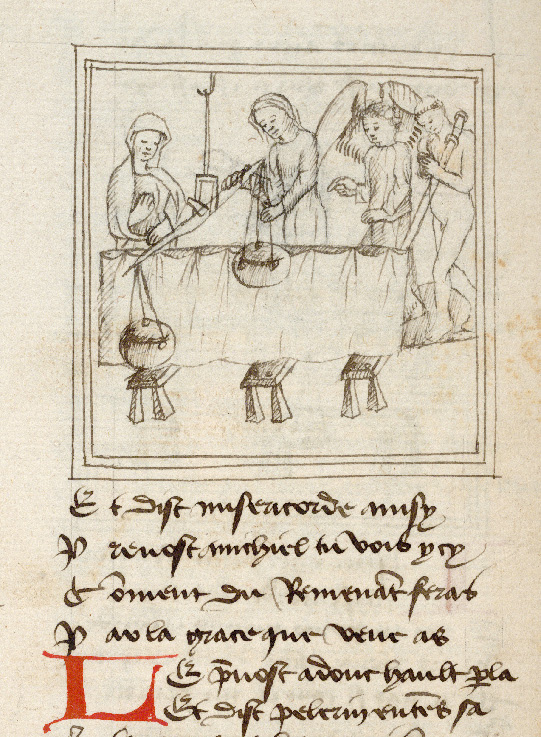 Et dist misericorde ainsy
Prevost michiel tu vois ycy
Cōment du Remenāt feras
Par la grace que veue as
LE p̄vost adonc hault ꝑla
Et dist pelerin entēs sa